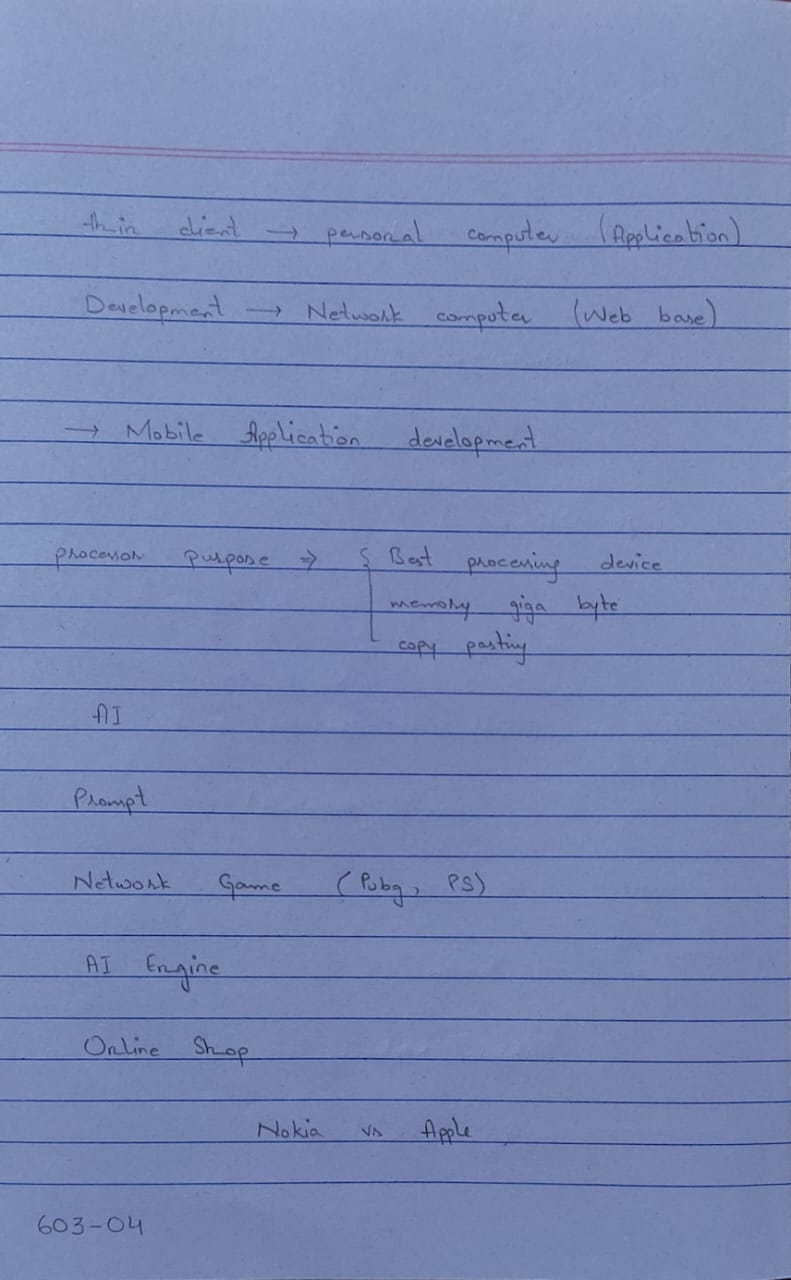 thin client → personal computer (Application)
Development → Network computer (Web base)
→ Mobile Application development
processor purpose ⇒ { Best processing device
memory giga byte
copy pasting
AI
Prompt
Network Game (Pubg, PS)
AI Engine
Online Shop
Nokia vs Apple
603-04